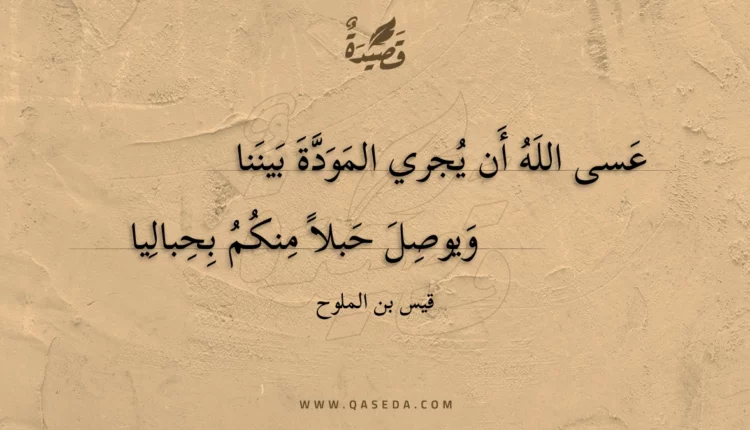 قَصِيْدَةٌ
عَسى اللَهُ أَن يُجري المَوَدَّةَ بَينَنا
وَيوصِلَ حَبلاً مِنكُمُ بِحِبالِيا
قيس بن الملوح
WWW.QASEDA.COM